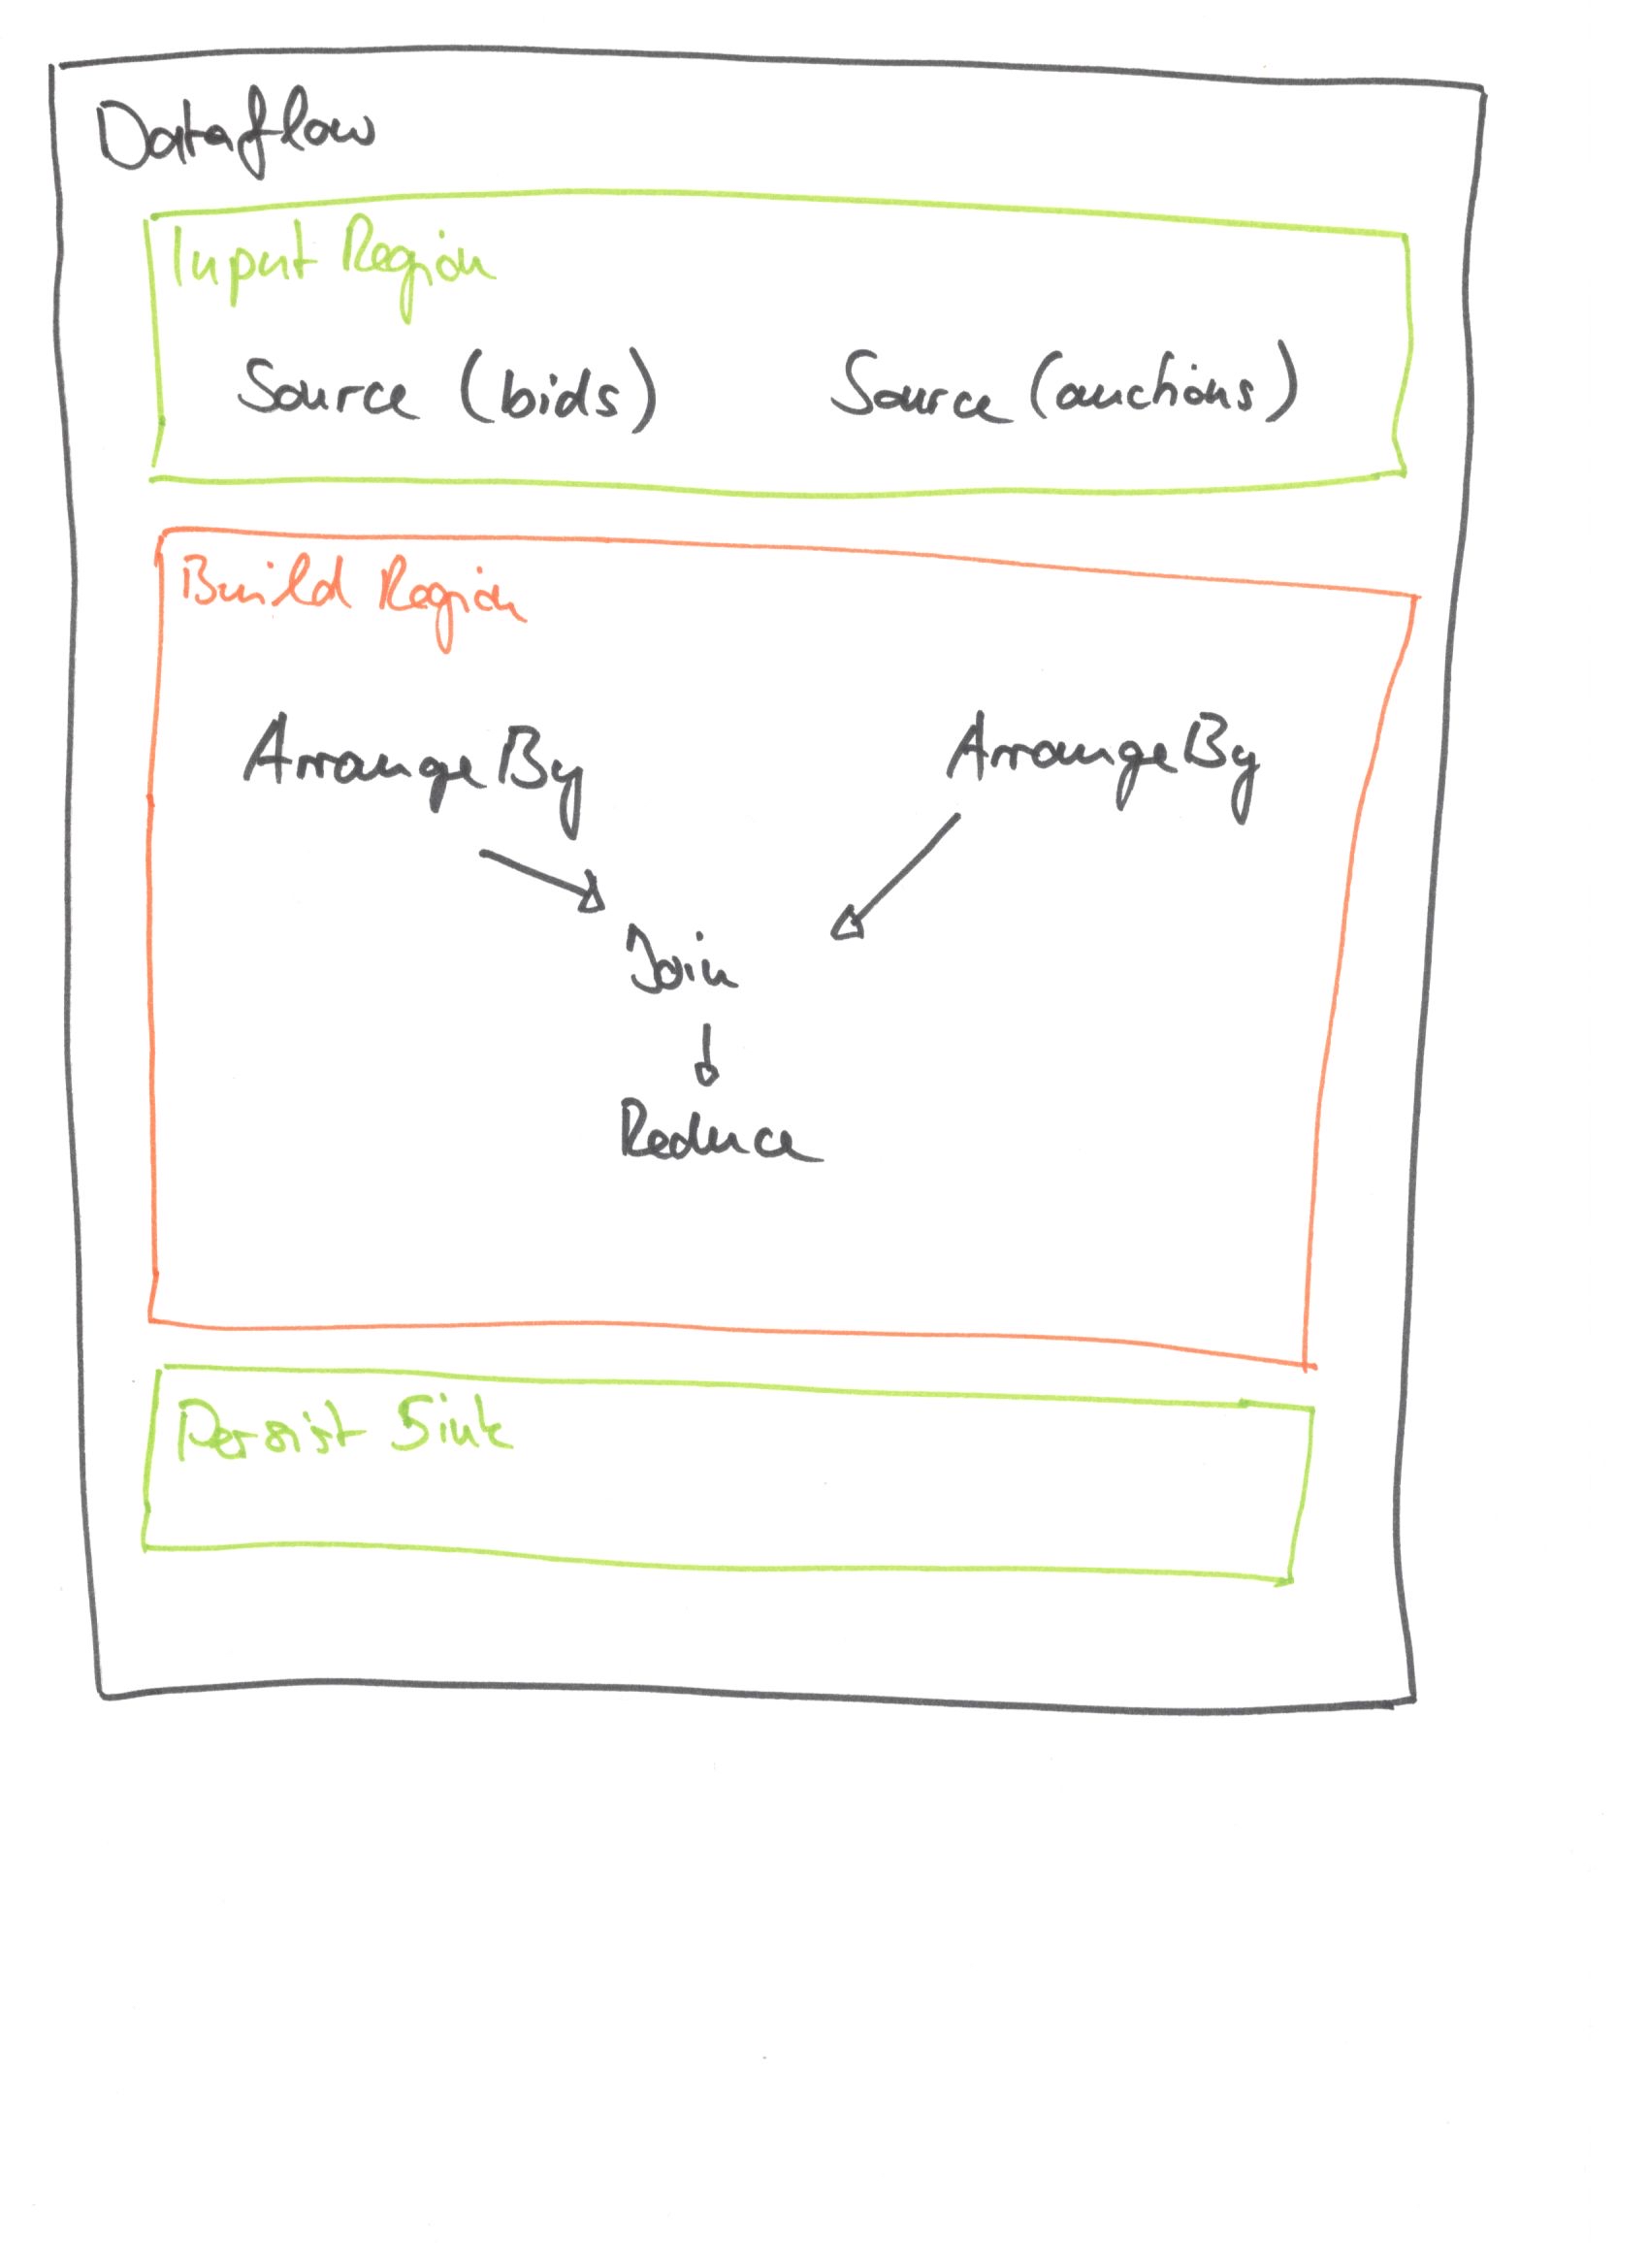 Dataflow
Input Region
Source (bids) Source (auctions)
Build Region
ArrangeBy ArrangeBy
Join
Reduce
Persist Sink